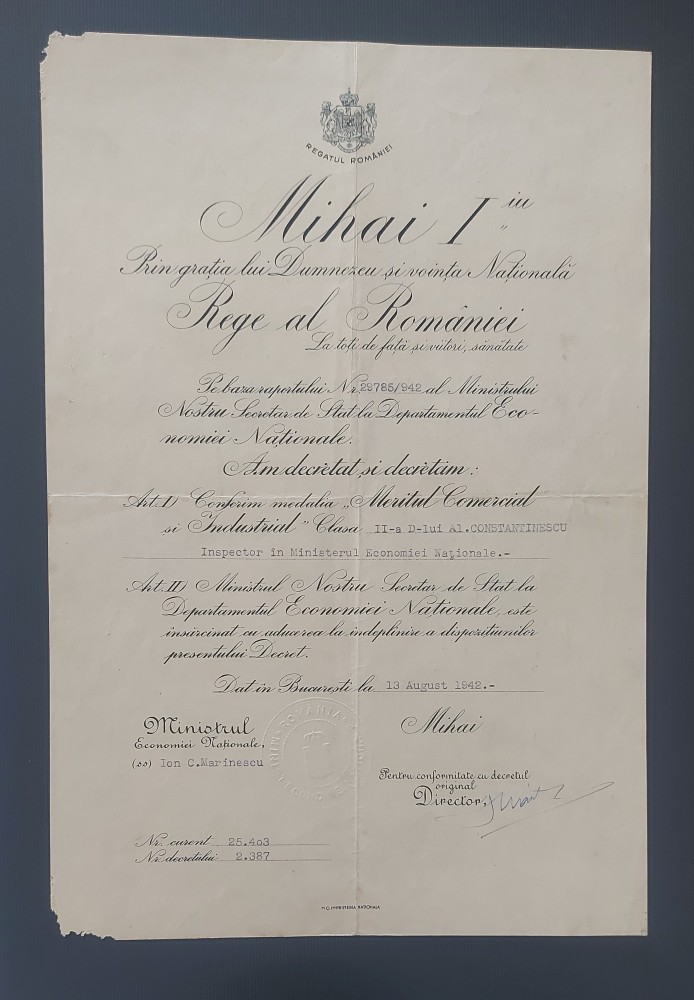 REGATUL ROMÂNIEI
Mihai I iu
Prin grația lui Dumnezeu și voința Națională
Rege al României
La toți de față și viitori, sănătate
Pe baza raportului Nr. 29785/942 al Ministrului
Nostru Secretar de Stat la Departamentul Eco-
nomiei Naționale.
Am decretat și decretăm:
Art. I) Conferim medalia „Meritul Comercial
și Industrial” Clasa II-a D-lui Al. CONSTANTINESCU
Inspector în Ministerul Economiei Naționale.-
Art. II) Ministrul Nostru Secretar de Stat la
Departamentul Economiei Naționale, este
însărcinat cu aducerea la îndeplinire a dispozițiunilor
presentului Decret.
Dat în București la 13 August 1942.-
Ministrul
Economiei Naționale,
(ss) Ion C. Marinescu
Mihai
Pentru conformitate cu decretul
original
Director,
Nr. curent 25.403
Nr. decretului 2.387
M.O. IMPRIMERIA NAȚIONALĂ